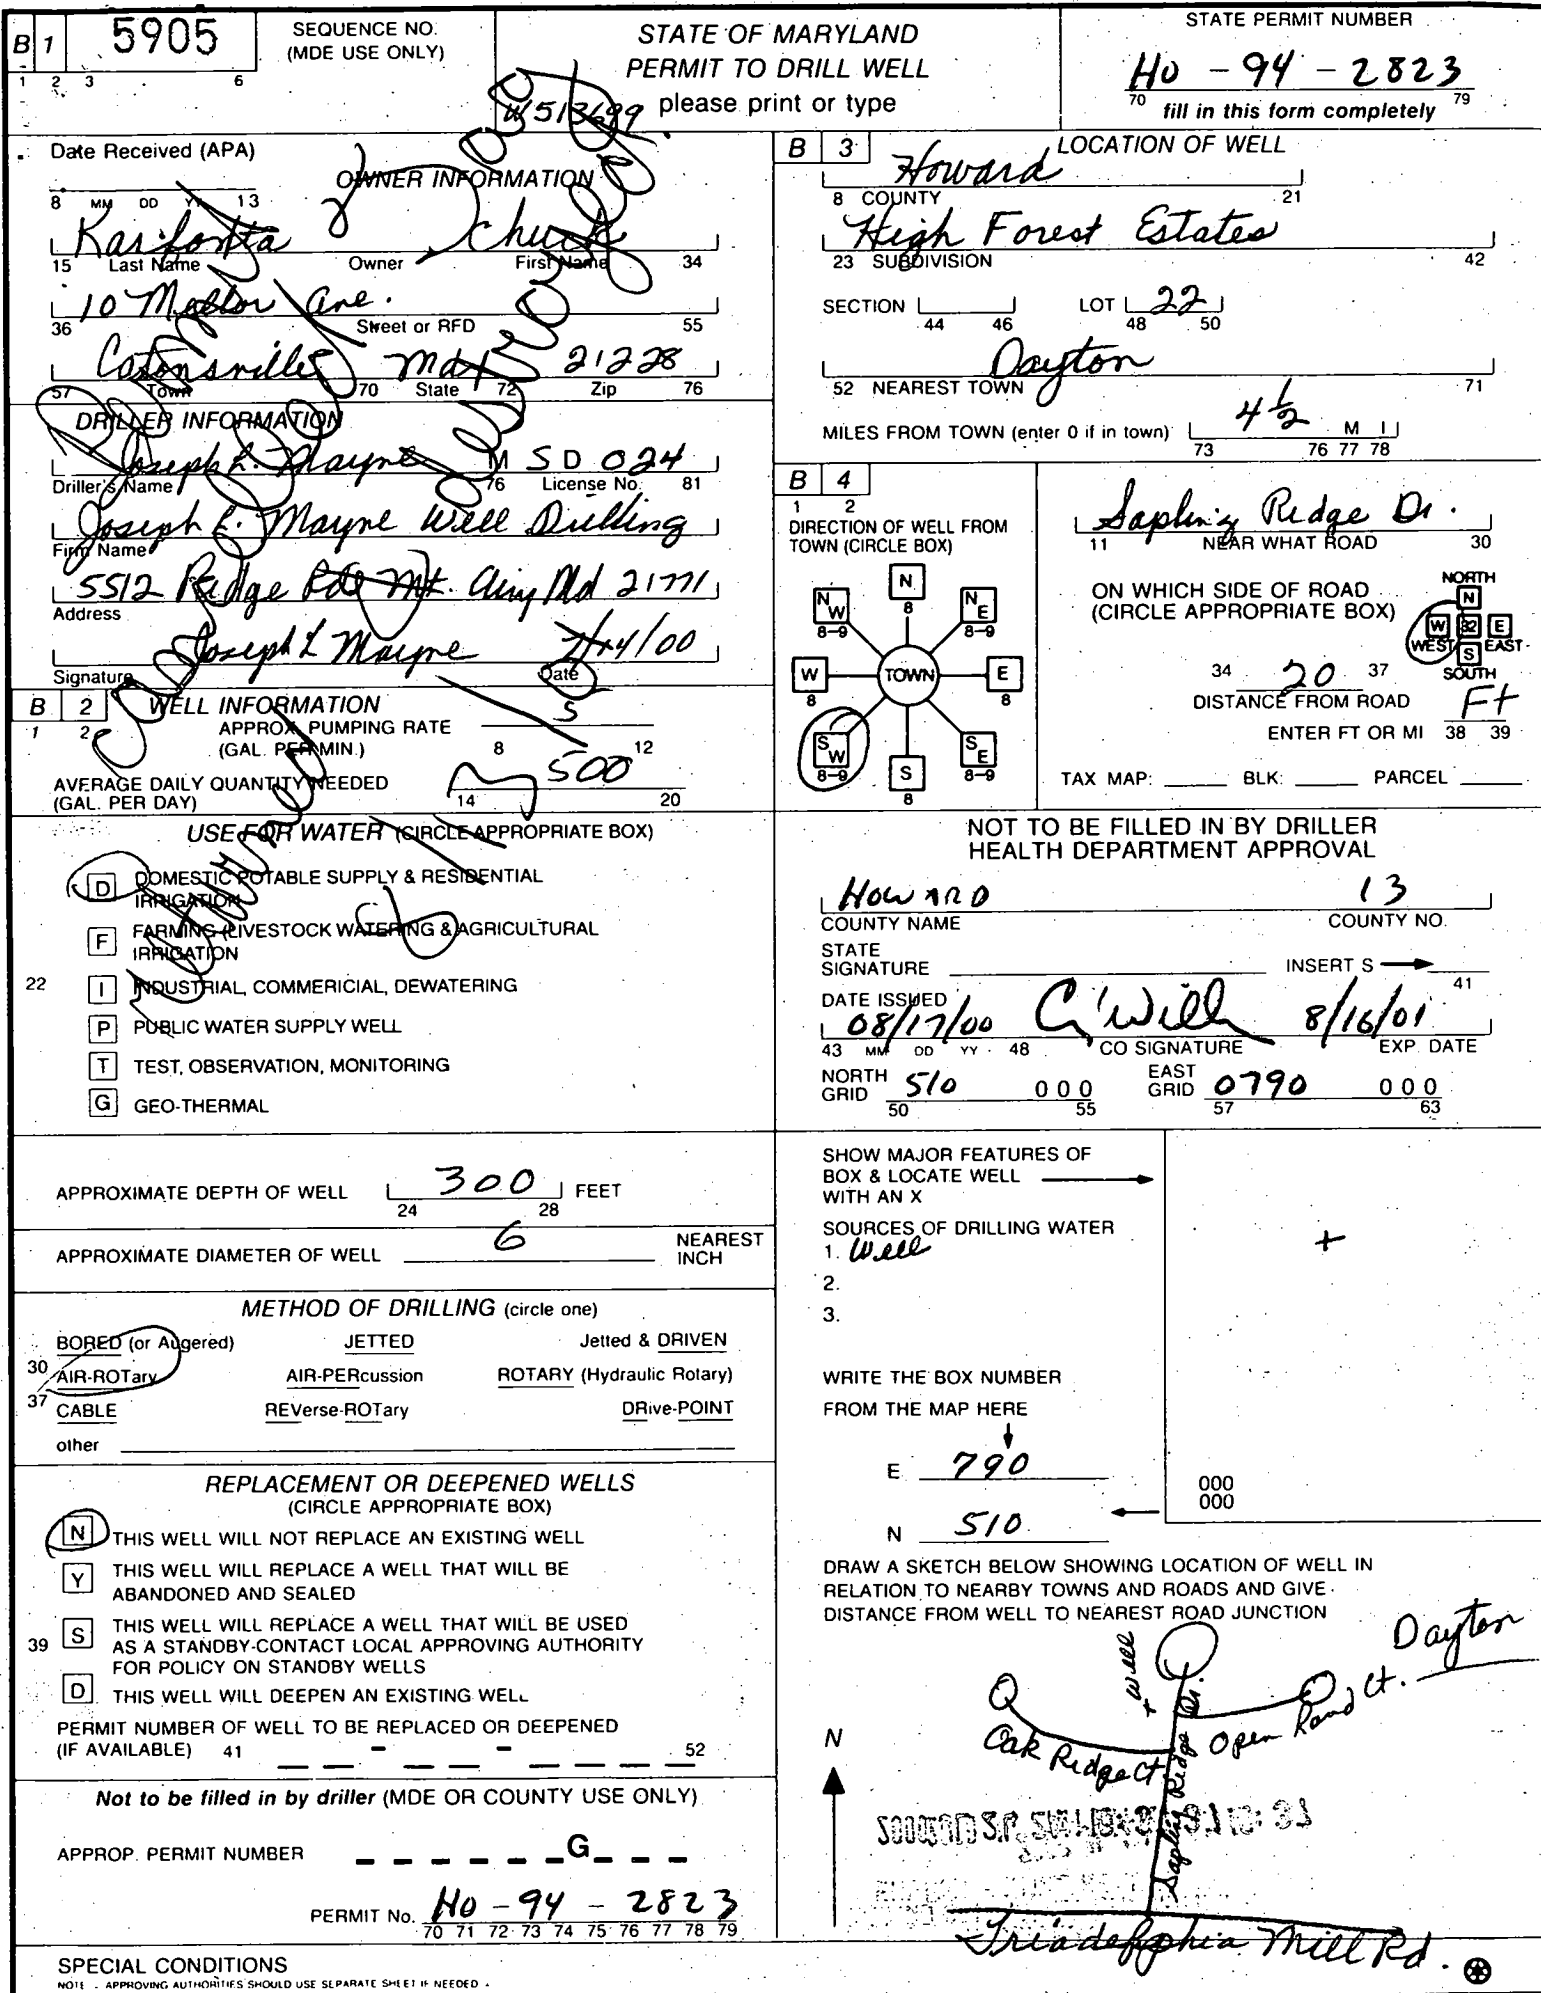 B 1 5905 SEQUENCE NO. (MDE USE ONLY)
1 2 3 6
STATE OF MARYLAND
PERMIT TO DRILL WELL
please print or type
W513699
STATE PERMIT NUMBER
HO - 94 - 2823
70 fill in this form completely 79
Date Received (APA)
8 MM DD YY 13
OWNER INFORMATION
Chuck
15 Last Name Owner First Name 34
10 Mellor Ave.
36 Street or RFD 55
Catonsville Md 21228
57 Town 70 State 72 Zip 76
DRILLER INFORMATION
Joseph L. Mayne M S D 024
Driller's Name 76 License No. 81
Joseph L. Mayne Well Drilling
Firm Name
5512 Ridge Rd Mt. Airy Md 21771
Address
Joseph L Mayne /00
Signature Date
B 2 WELL INFORMATION
1 2
APPROX. PUMPING RATE (GAL. PER MIN.) 5
8 12
AVERAGE DAILY QUANTITY NEEDED (GAL. PER DAY) 500
14 20
USE FOR WATER (CIRCLE APPROPRIATE BOX)
D DOMESTIC POTABLE SUPPLY & RESIDENTIAL
IRRIGATION
F FARMING (LIVESTOCK WATERING & AGRICULTURAL
IRRIGATION
22 I INDUSTRIAL, COMMERICIAL, DEWATERING
P PUBLIC WATER SUPPLY WELL
T TEST, OBSERVATION, MONITORING
G GEO-THERMAL
APPROXIMATE DEPTH OF WELL 300 FEET
24 28
APPROXIMATE DIAMETER OF WELL 6 NEAREST INCH
METHOD OF DRILLING (circle one)
BORED (or Augered) JETTED Jetted & DRIVEN
30 AIR-ROTary AIR-PERcussion ROTARY (Hydraulic Rotary)
37 CABLE REVerse-ROTary DRive-POINT
other
REPLACEMENT OR DEEPENED WELLS
(CIRCLE APPROPRIATE BOX)
N THIS WELL WILL NOT REPLACE AN EXISTING WELL
Y THIS WELL WILL REPLACE A WELL THAT WILL BE
ABANDONED AND SEALED
39 S THIS WELL WILL REPLACE A WELL THAT WILL BE USED
AS A STANDBY-CONTACT LOCAL APPROVING AUTHORITY
FOR POLICY ON STANDBY WELLS
D THIS WELL WILL DEEPEN AN EXISTING WELL
PERMIT NUMBER OF WELL TO BE REPLACED OR DEEPENED
(IF AVAILABLE) 41 - - 52
Not to be filled in by driller (MDE OR COUNTY USE ONLY)
APPROP. PERMIT NUMBER G
PERMIT No. HO - 94 - 2823
70 71 72 73 74 75 76 77 78 79
SPECIAL CONDITIONS
NOTE - APPROVING AUTHORITIES SHOULD USE SEPARATE SHEET IF NEEDED
B 3 LOCATION OF WELL
Howard
8 COUNTY 21
High Forest Estates
23 SUBDIVISION 42
SECTION LOT 22
44 46 48 50
Dayton
52 NEAREST TOWN 71
MILES FROM TOWN (enter 0 if in town) 4 1/2 M I
73 76 77 78
B 4
1 2
DIRECTION OF WELL FROM
TOWN (CIRCLE BOX)
N 8
NW 8-9 NE 8-9
W 8 TOWN E 8
SW 8-9 SE 8-9
S 8
Sapling Ridge Dr.
11 NEAR WHAT ROAD 30
ON WHICH SIDE OF ROAD
(CIRCLE APPROPRIATE BOX)
NORTH
N
W 32 E
WEST EAST
S
SOUTH
34 20 37
DISTANCE FROM ROAD
ENTER FT OR MI Ft
38 39
TAX MAP: BLK: PARCEL
NOT TO BE FILLED IN BY DRILLER
HEALTH DEPARTMENT APPROVAL
HOWARD 13
COUNTY NAME COUNTY NO.
STATE
SIGNATURE INSERT S
41
DATE ISSUED
08/17/00 8/16/01
43 MM DD YY 48 CO SIGNATURE EXP. DATE
NORTH GRID 510 000 EAST GRID 0790 000
50 55 57 63
SHOW MAJOR FEATURES OF
BOX & LOCATE WELL
WITH AN X
SOURCES OF DRILLING WATER
1. Well
2.
3.
WRITE THE BOX NUMBER
FROM THE MAP HERE
E 790
N 510
000
000
DRAW A SKETCH BELOW SHOWING LOCATION OF WELL IN
RELATION TO NEARBY TOWNS AND ROADS AND GIVE
DISTANCE FROM WELL TO NEAREST ROAD JUNCTION
Dayton
+ Well
Oak Ridge Ct.
Sapling Ridge Dr.
N
Triadelphia Mill Rd.